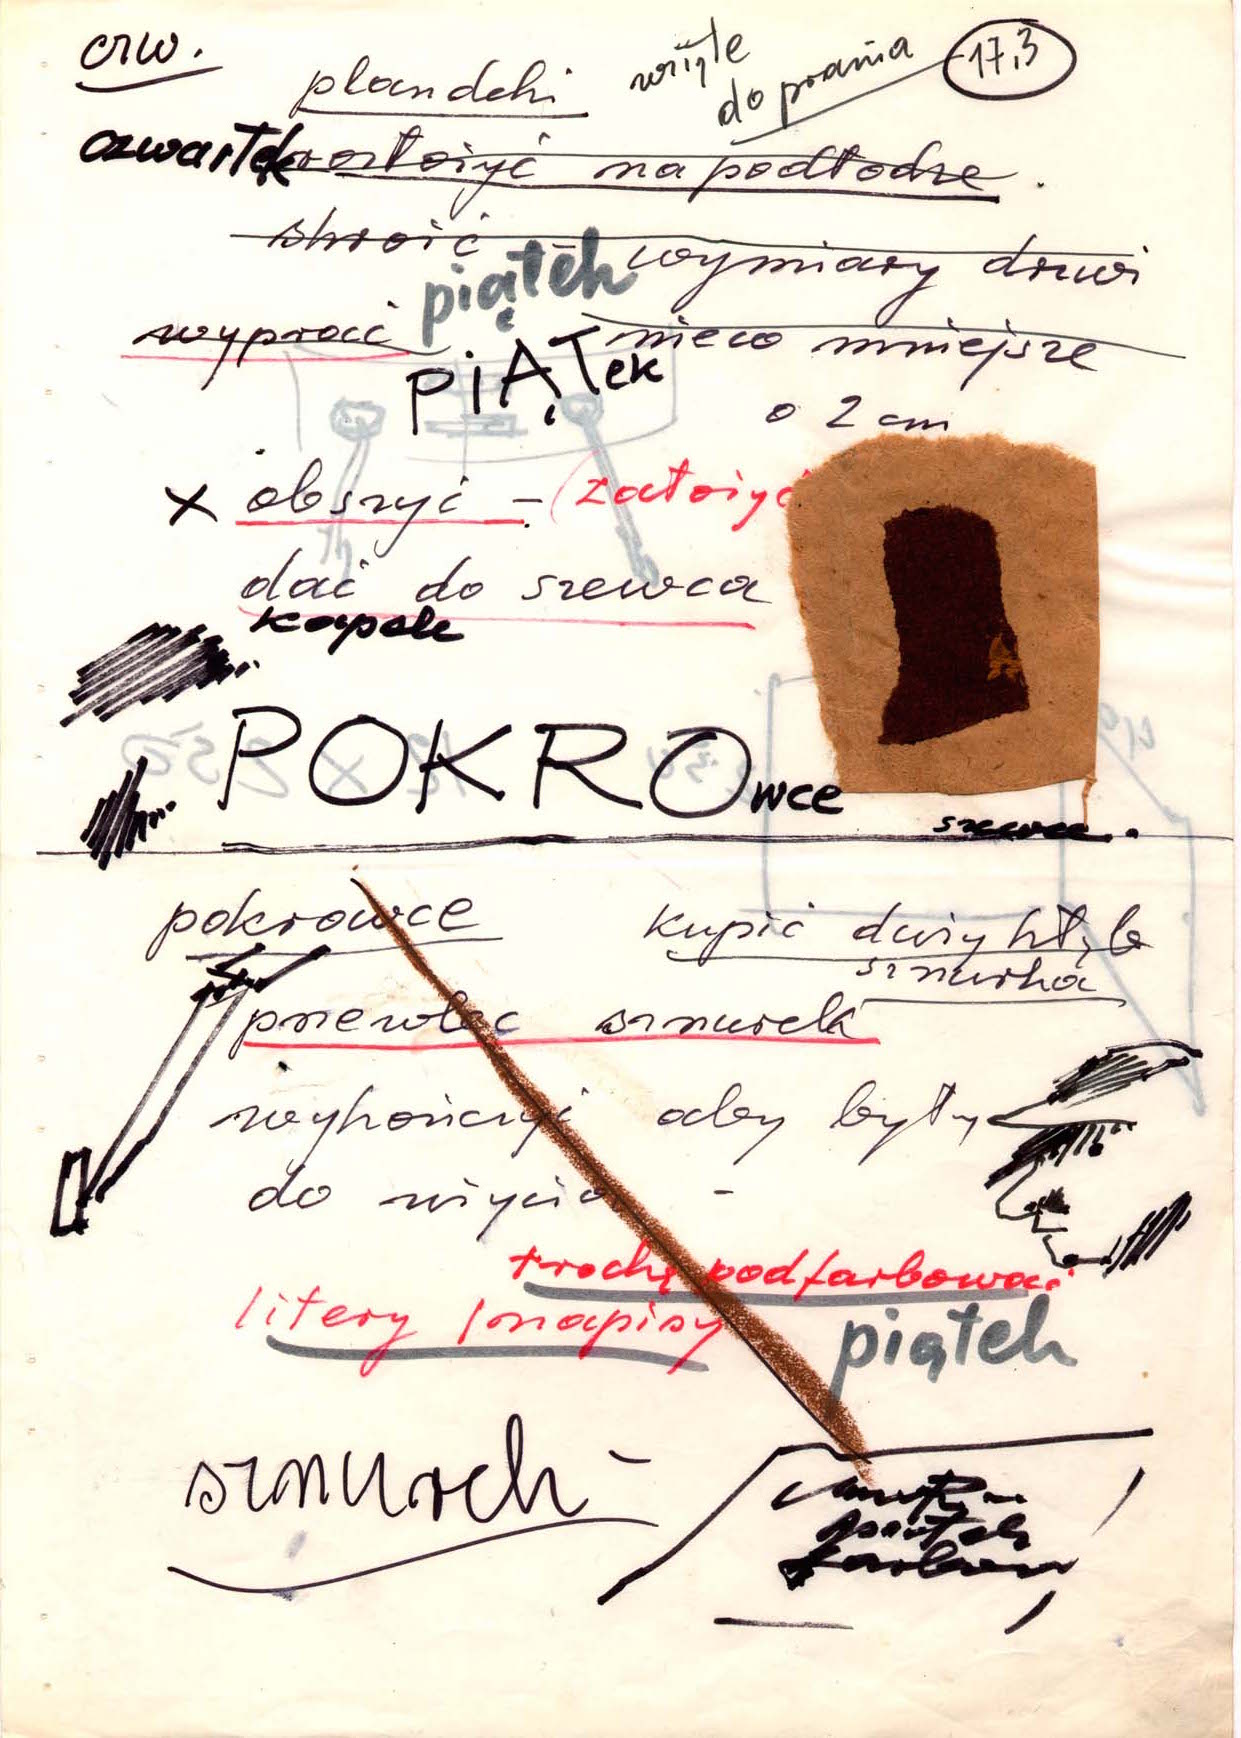 czw.
plandeki wzięte
do prania 17,3
czwartek rozłożyć na podłodze.
skroić wymiary drzwi
piątek
wyprać nieco mniejsze
PIĄTek
o 2 cm
x obszyć - (założyć
dać do szewca
kapsle
POKROwce
szewce.
pokrowce kupić
sznurka
przewlec sznurek
wykończyć aby były
do użycia -
trochę podfarbować
litery / napisy
piątek
sznurek -